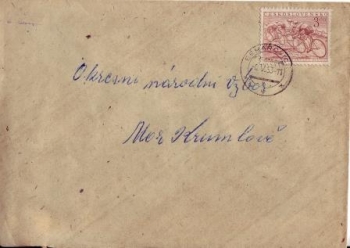 3
ČESKOSLOVENSKO
Okresní národní výbor
Mor Krumlově